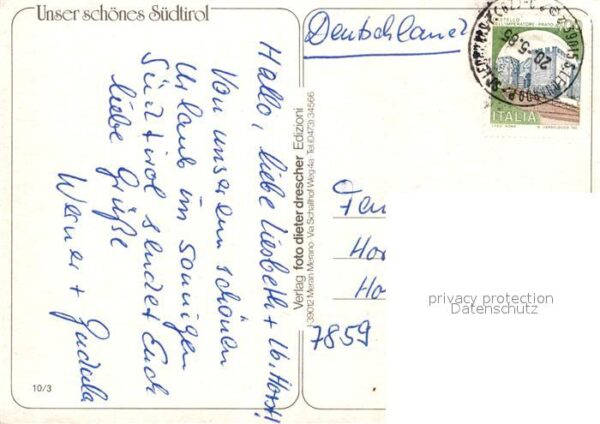 Unser schönes Südtirol
Hallo, liebe Liesbeth + lb. Horst!
Von unserem schönen
Urlaub im sonnigen
Südtirol sendet Euch
liebe Grüße
Werner + Gudula
10/3
Verlag foto dieter drescher Edizioni
39012 Meran Merano · Via Schallhof Weg 4a · Tel. (0473) 34566
Deutschland
CASTELLO
DELL'IMPERATORE - PRATO
ITALIA
20-5
Fam
Hor
Ho
7859
privacy protection
Datenschutz